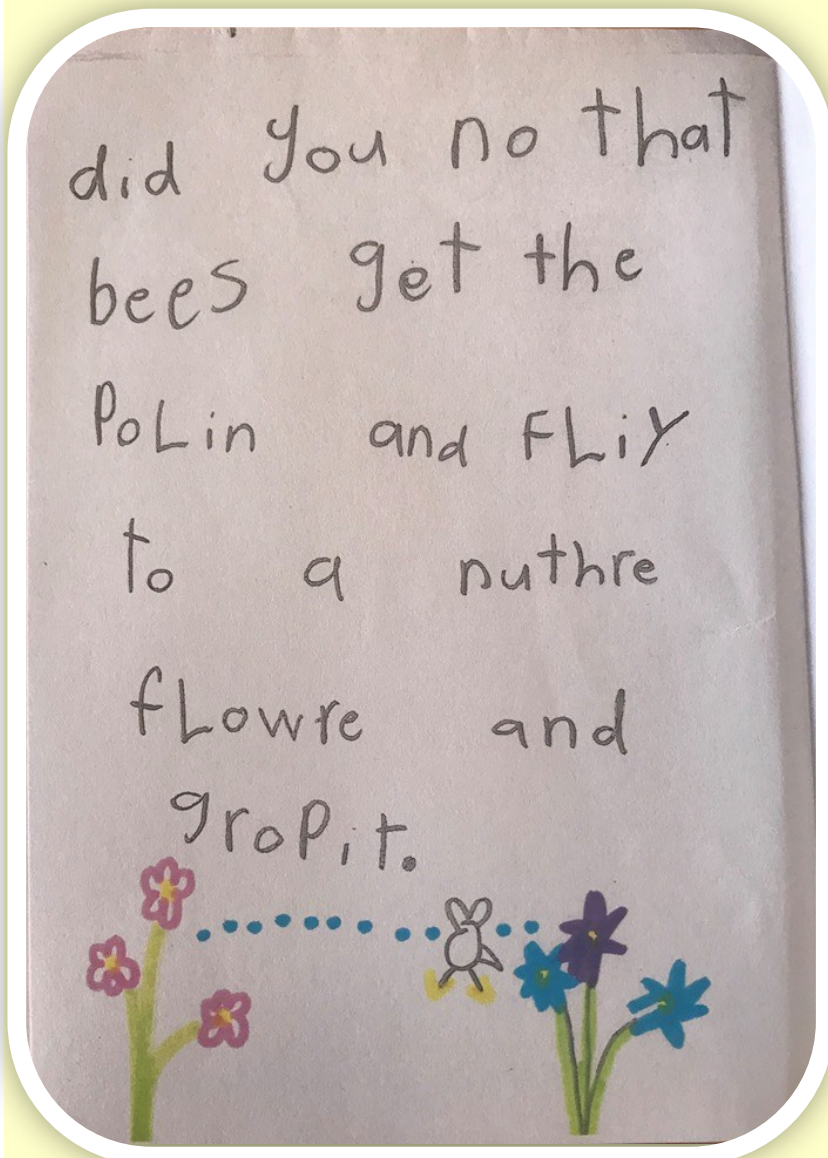 did you no that
bees get the
PoLin and FLiY
to a nuthre
fLowre and
groPit.